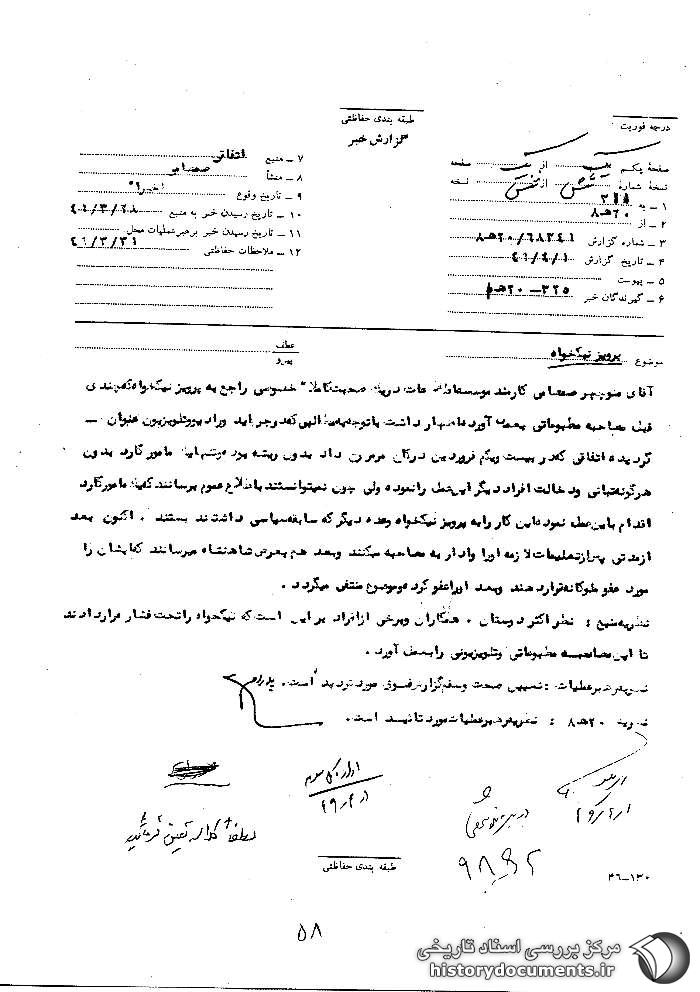 درجه فوریت
طبقه بندی حفاظتی
گزارش خبر
صفحه یکم از یک صفحه
نسخه شماره شش از شش نسخه
۱ ـ به ۳۱۱
۲ ـ از ۲۰هـ۸
۳ ـ شماره گزارش ۶۸۲۴۱/۲۰هـ۸
۴ ـ تاریخ گزارش ۴۶/۴/۱
۵ ـ پیوست
۶ ـ گیرندگان خبر
۷ ـ منبع اتفاقی
۸ ـ منشأ صمصامی
۹ ـ تاریخ وقوع اخیراً
۱۰ ـ تاریخ رسیدن خبر به منبع ۴۶/۳/۲۸
۱۱ ـ تاریخ رسیدن خبر برهبر عملیات محل ۴۶/۳/۳۱
۱۲ ـ ملاحظات حفاظتی
موضوع پرویز نیکخواه
عطف
پیرو
آقای منوچهر صمصامی کارمند موسسه اطلاعات در یک صحبت کاملا" خصوصی راجع به پرویز نیکخواه که چندی
قبل مصاحبه مطبوعاتی بعمل آورد اظهار داشت با توجه به مطالبی که در جراید و رادیو و تلویزیون عنوان ـ
گردیده اتفاقی که در بیست و یکم فروردین در کاخ مرمر رخ داد بدون ریشه بود و تنها یک مامور گارد بدون
هرگونه تبانی و دخالت افراد دیگر این عمل را نموده ولی چون نمیتوانستند باطلاع عموم برسانند که یک مامور گارد
اقدام باین عمل نموده این کار را به پرویز نیکخواه و عده دیگر که سابقه سیاسی داشتند بستند . اکنون بعد
از مدتی پس از تعلیمات لازمه او را وادار به مصاحبه میکنند و بعد هم بعرض شاهنشاه میرسانند که ایشان را
مورد عفو ملوکانه قرار دهند و بعد او را عفو کرده و موضوع منتفی میگردد .
نظریه منبع : نظر اکثر دوستان ، همکاران و برخی از افراد بر این است که نیکخواه را تحت فشار قرار دادند
تا این مصاحبه مطبوعاتی و تلویزیونی را بعمل آورد .
نظریه رهبر عملیات : تعیین صحت و سقم گزارش فوق مورد تردید است .
نظریه ۲۰هـ۸ : نظریه رهبر عملیات مورد تائید است .
اداره یکم سوم
لطفاً
طبقه بندی حفاظتی
۱۳۰ـ۳۶
۵۸
مرکز بررسی اسناد تاریخی
historydocuments.ir